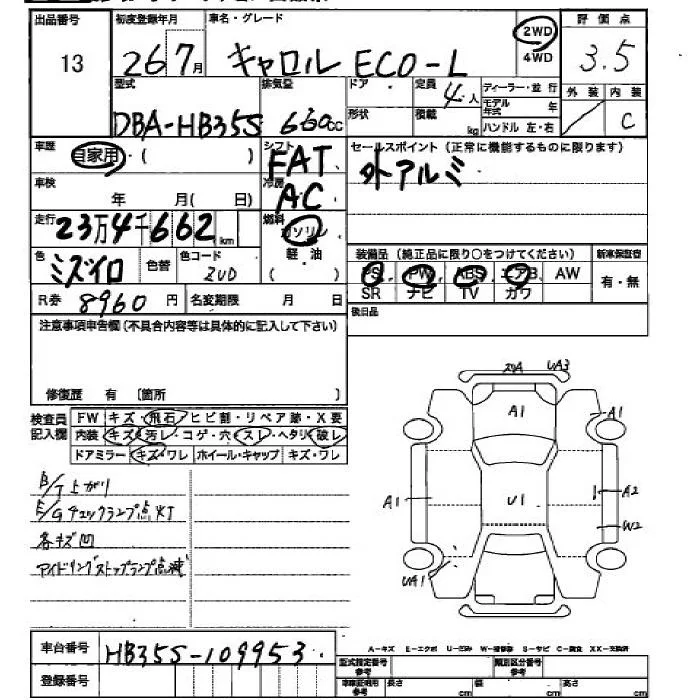 出品番号 初度登録年月 車名・グレード 2WD 4WD 評価点
13 26 7月 キャロル ECO-L 3.5
型式 排気量 ドア 定員 4人 ディーラー・並行 外装 内装
DBA-HB35S 660cc 形状 積載 kg モデル年式 年 ハンドル 左・右 C
車歴 自家用・( ) シフト FAT セールスポイント(正常に機能するものに限ります)
車検 年 月( 日) 冷房 AC 外アルミ
走行 23万4千662km 燃料 ガソリン
色 ミズイロ 色替 色コード ZUD 軽油 ( ) 装備品(純正品に限り○をつけてください) 新車保証書
PS PW ABS エアB AW 有・無
R券 8960円 名変期限 月 日 SR ナビ TV カワ
注意事項申告欄(不具合内容等は具体的に記入して下さい) 後日品
修復歴 有 〔箇所 〕
検査員記入欄 FW キズ・飛石・ヒビ割・リペア跡・X要
内装 キズ・汚レ・コゲ・穴・スレ・ヘタリ・破レ
ドアミラー キズ・ワレ ホイール・キャップ キズ・ワレ
B/T上がり
E/Gチェックランプ点灯
各キズ凹
アイドリングストップランプ点滅
UA3
A1 A1
A1 U1 A2
W2
UA1
車台番号 HB35S-109953
登録番号
A-キズ E-エクボ U-凹み W-補修跡 S-サビ C-腐食 XX-交換済
型式指定番号 参考 類別区分番号 参考
車庫証明用 参考 長さ cm 幅 cm 高さ cm